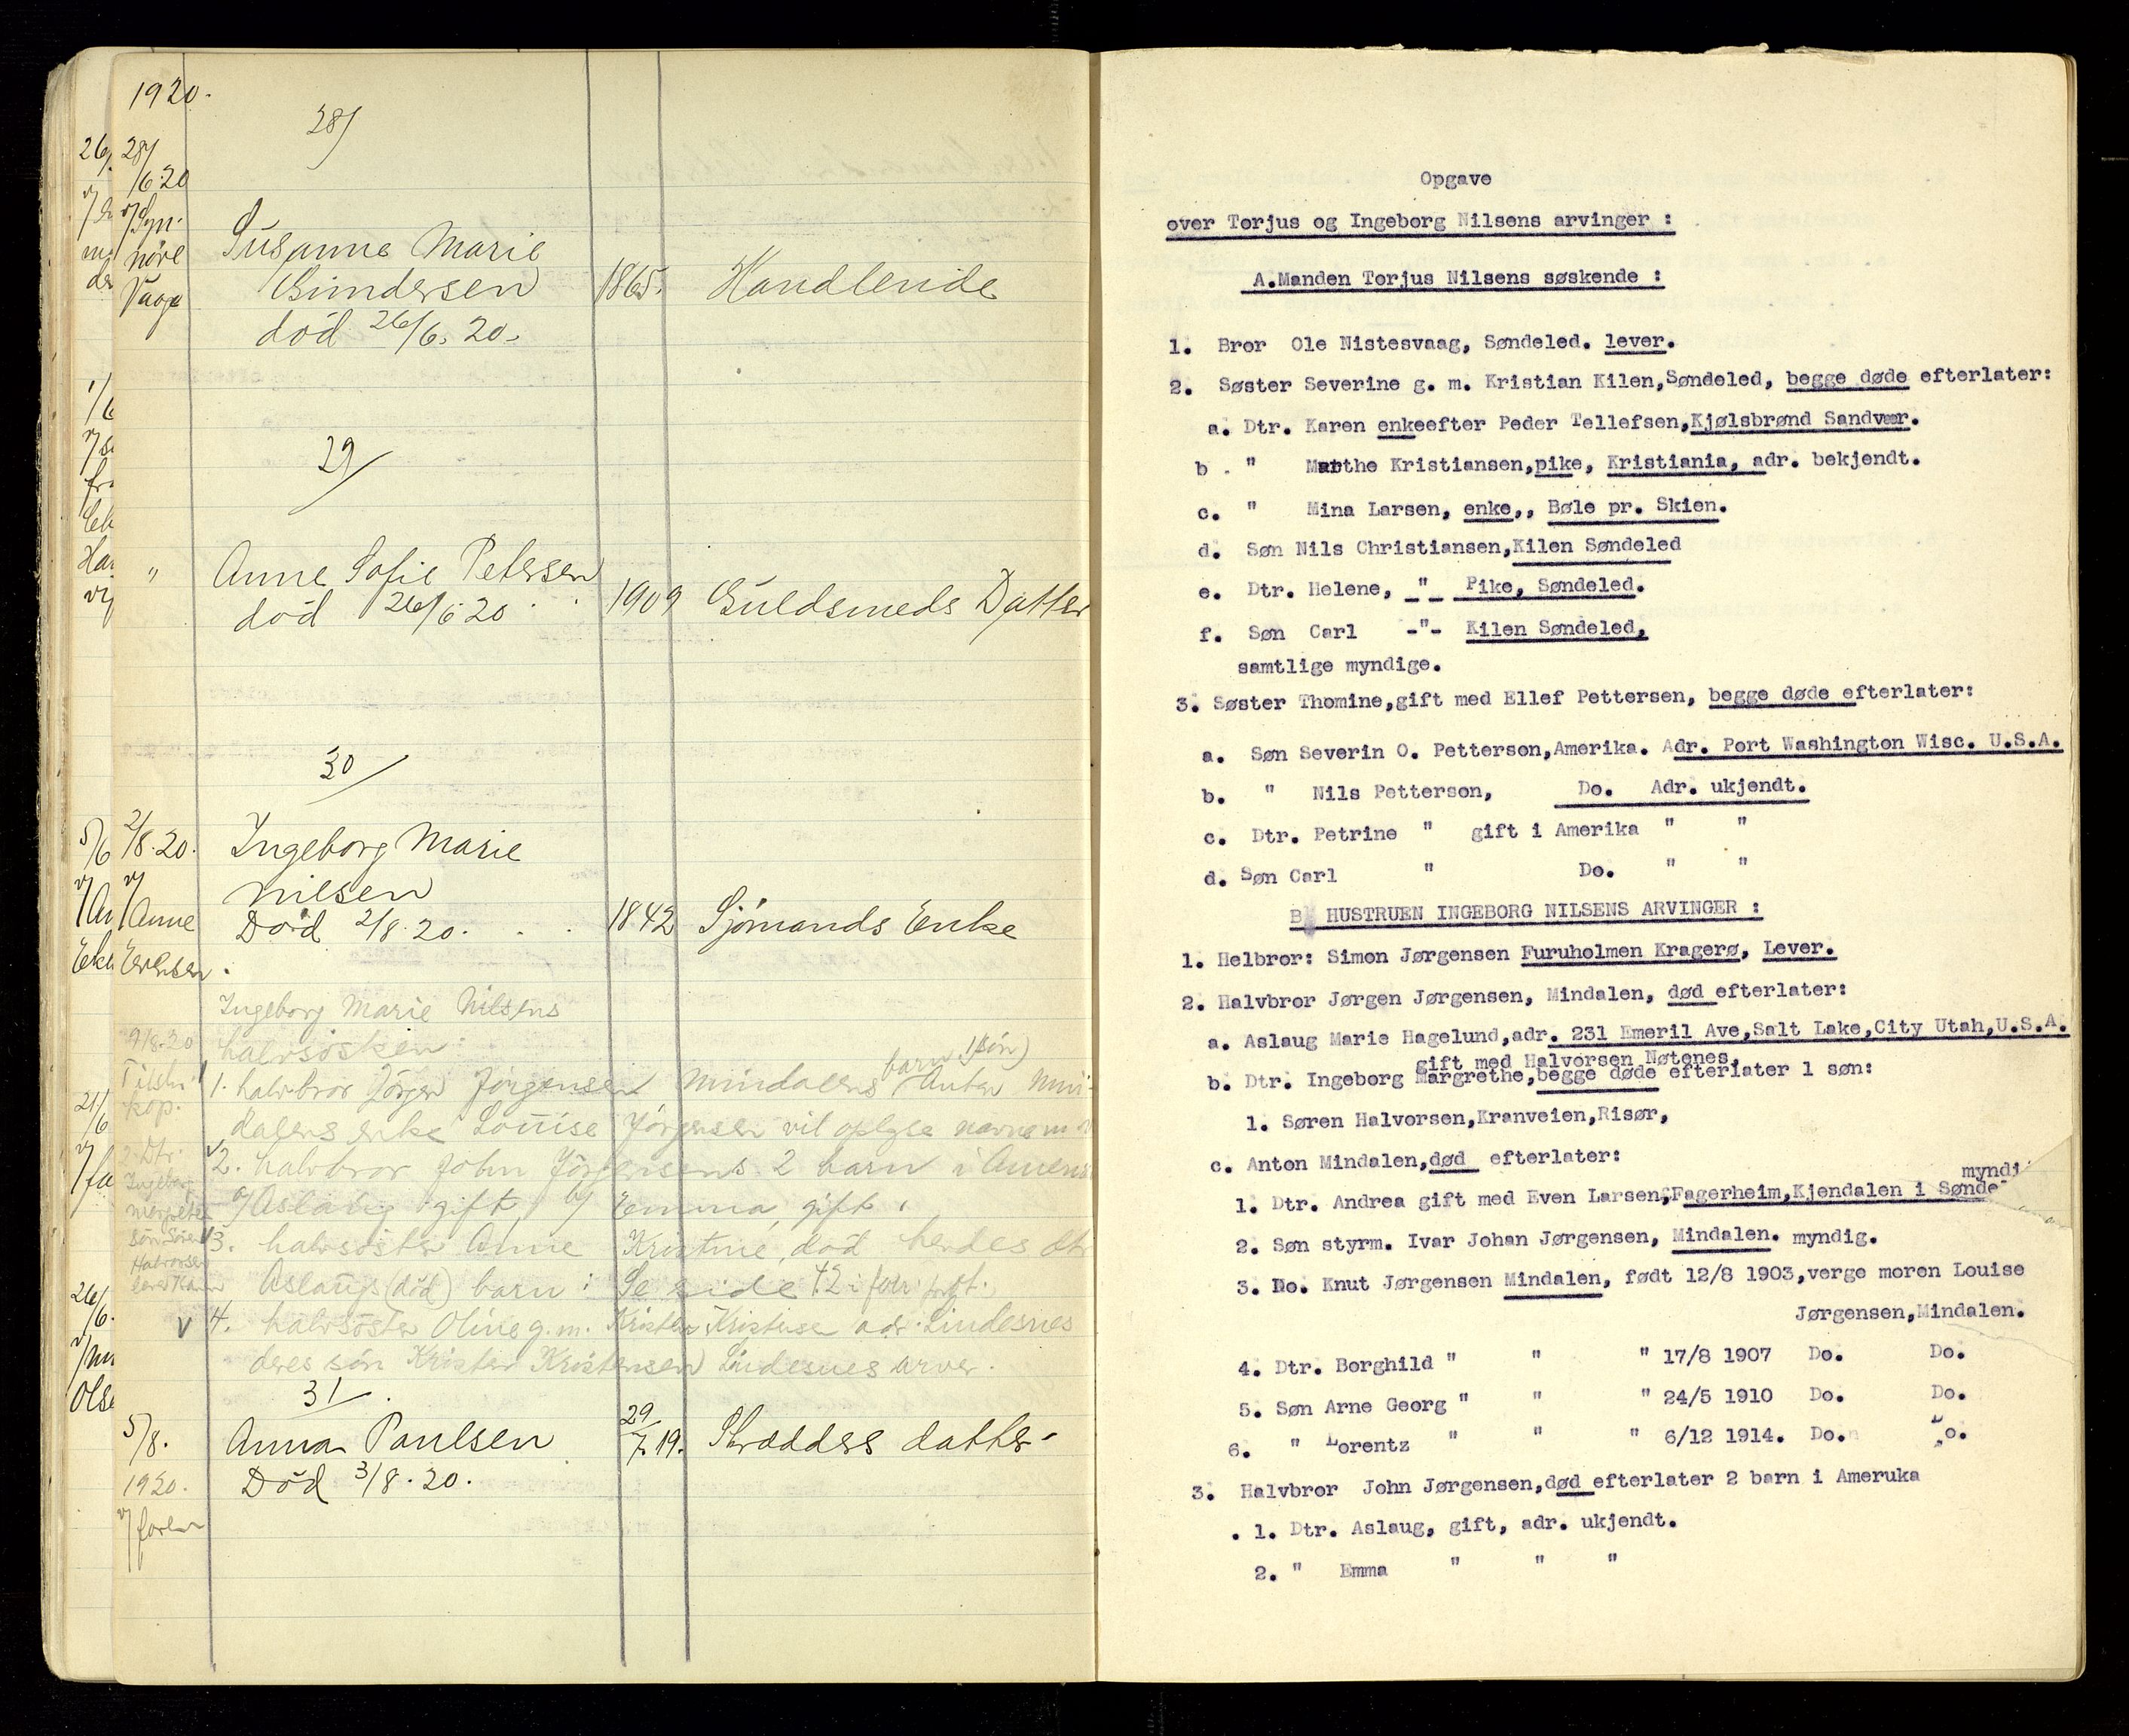 1920.
28/
28/
/6.20
v/ Syn-
növe
Vaage
Susanne Marie
Gundersen
1865.
Handlende
död 26/6. 20.
29/
"
Anne Sofie Petersen
död 26/6 20
1909
Guldsmeds Datter
30/
2/8.20.
v/
Anne
Eriksen
Ingeborg Marie
Nilsen
Död 2/8.20.
1842
Sjömands Enke
Ingeborg Marie Nilsens
9/8.20
halvsösken
1. halvbror Jörgen Jörgensen Mindalens barn (1 sön) Anton Min-
dalens enke Louise Jörgensen vil oplyse navnene
2. halvbror John Jörgensens 2 barn i Amerika
a/ Aslaug gift, b/ Emma, gift.
3. halvsöster Anne Kristine, död hendes dtr
Aslaugs (död) barn: Se side 42 i forr. prot.
4. halvsöster Oline g.m. Kristen Kristensen adr. Lindesnes
deres sön Kristen Kristensen Lindesnes arver.
31/.
5/8.
1920.
v/ faren
Anna Paulsen
29/7.19.
Skrædders datter
Död 3/8.20.
Opgave
over Torjus og Ingeborg Nilsens arvinger :
A.Manden Torjus Nilsens søskende :
1. Bror Ole Nistesvaag, Søndeled. lever.
2. Søster Severine g. m. Kristian Kilen,Søndeled, begge døde efterlater:
a. Dtr. Karen enkeefter Peder Tellefsen,Kjølsbrønd Sandvær.
b . " Marthe Kristiansen,pike, Kristiania, adr. bekjendt.
c. " Mina Larsen, enke,, Bøle pr. Skien.
d. Søn Nils Christiansen,Kilen Søndeled
e. Dtr. Helene, " Pike, Søndeled.
f. Søn Carl -"- Kilen Søndeled,
samtlige myndige.
3. Søster Thomine,gift med Ellef Pettersen, begge døde efterlater:
a. Søn Severin O. Petterson,Amerika. Adr. Port Washington Wisc. U.S.A.
b. " Nils Petterson, Do. Adr. ukjendt.
c. Dtr. Petrine " gift i Amerika " "
d. Søn Carl " Do. " "
B HUSTRUEN INGEBORG NILSENS ARVINGER :
1. Helbror: Simon Jørgensen Furuholmen Kragerø, Lever.
2. Halvbror Jørgen Jørgensen, Mindalen, død efterlater:
a. Aslaug Marie Hagelund,adr. 231 Emeril Ave,Salt Lake,City Utah,U.S.A.
gift med Halvorsen Nøtenes,
b. Dtr. Ingeborg Margrethe,begge døde efterlater 1 søn:
1. Søren Halvorsen,Kranveien,Risør,
c. Anton Mindalen,død efterlater:
myndi
1. Dtr. Andrea gift med Even Larsen,Fagerheim,Kjendalen i Sønde
2. Søn styrm. Ivar Johan Jørgensen, Mindalen. myndig.
3. Do. Knut Jørgensen Mindalen, født 12/8 1903,verge moren Louise
Jørgensen,Mindalen.
4. Dtr. Borghild " " " 17/8 1907 Do. Do.
5. Søn Arne Georg " " " 24/5 1910 Do. Do.
6. " Lorentz " " " 6/12 1914. Do. Do.
3. Halvbror John Jørgensen,død efterlater 2 barn i Ameruka
. 1. Dtr. Aslaug, gift, adr. ukjendt.
2. " Emma " " "